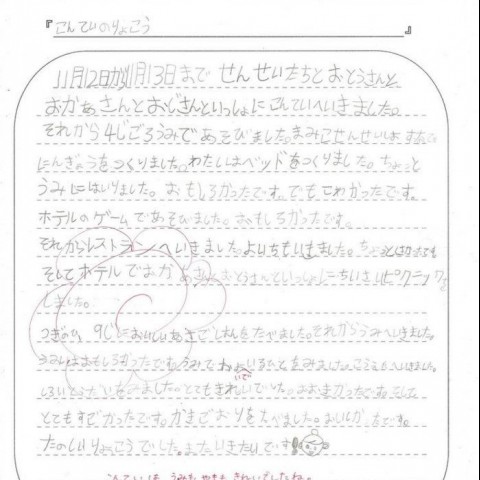 『こんてぃのりょこう』
11月12日から11月13日まで せんせいたちとおとうさんと
おかあさんとおじさんといっしょにこんてぃへいきました。
それから4じごろうみであそびました。まみこせんせいは すなで
にんぎょうをつくりました。わたしはベッドをつくりました。ちょっと
うみにはいりました。おもしろかったです。でもこわかったです。
ホテルのゲームであそびました。おもしろかったです。
それからレストランへいきました。よいちもいきました。
そしてホテルでおかあさんとおとうさんといっしょにちいさいピクニックを
しました。
つぎのひ、9じにおいしいあさごはんをたべました。それからうみへいきました。
うみはおもしろかったです。うみで いるひとをみました。 へいきました。
をみました。とてもきれいでした。おおきかったです。そして
とてもすごかったです。かきごおりをたべました。おいしかったです。
たのしいりょこうでした。またいきたいです!